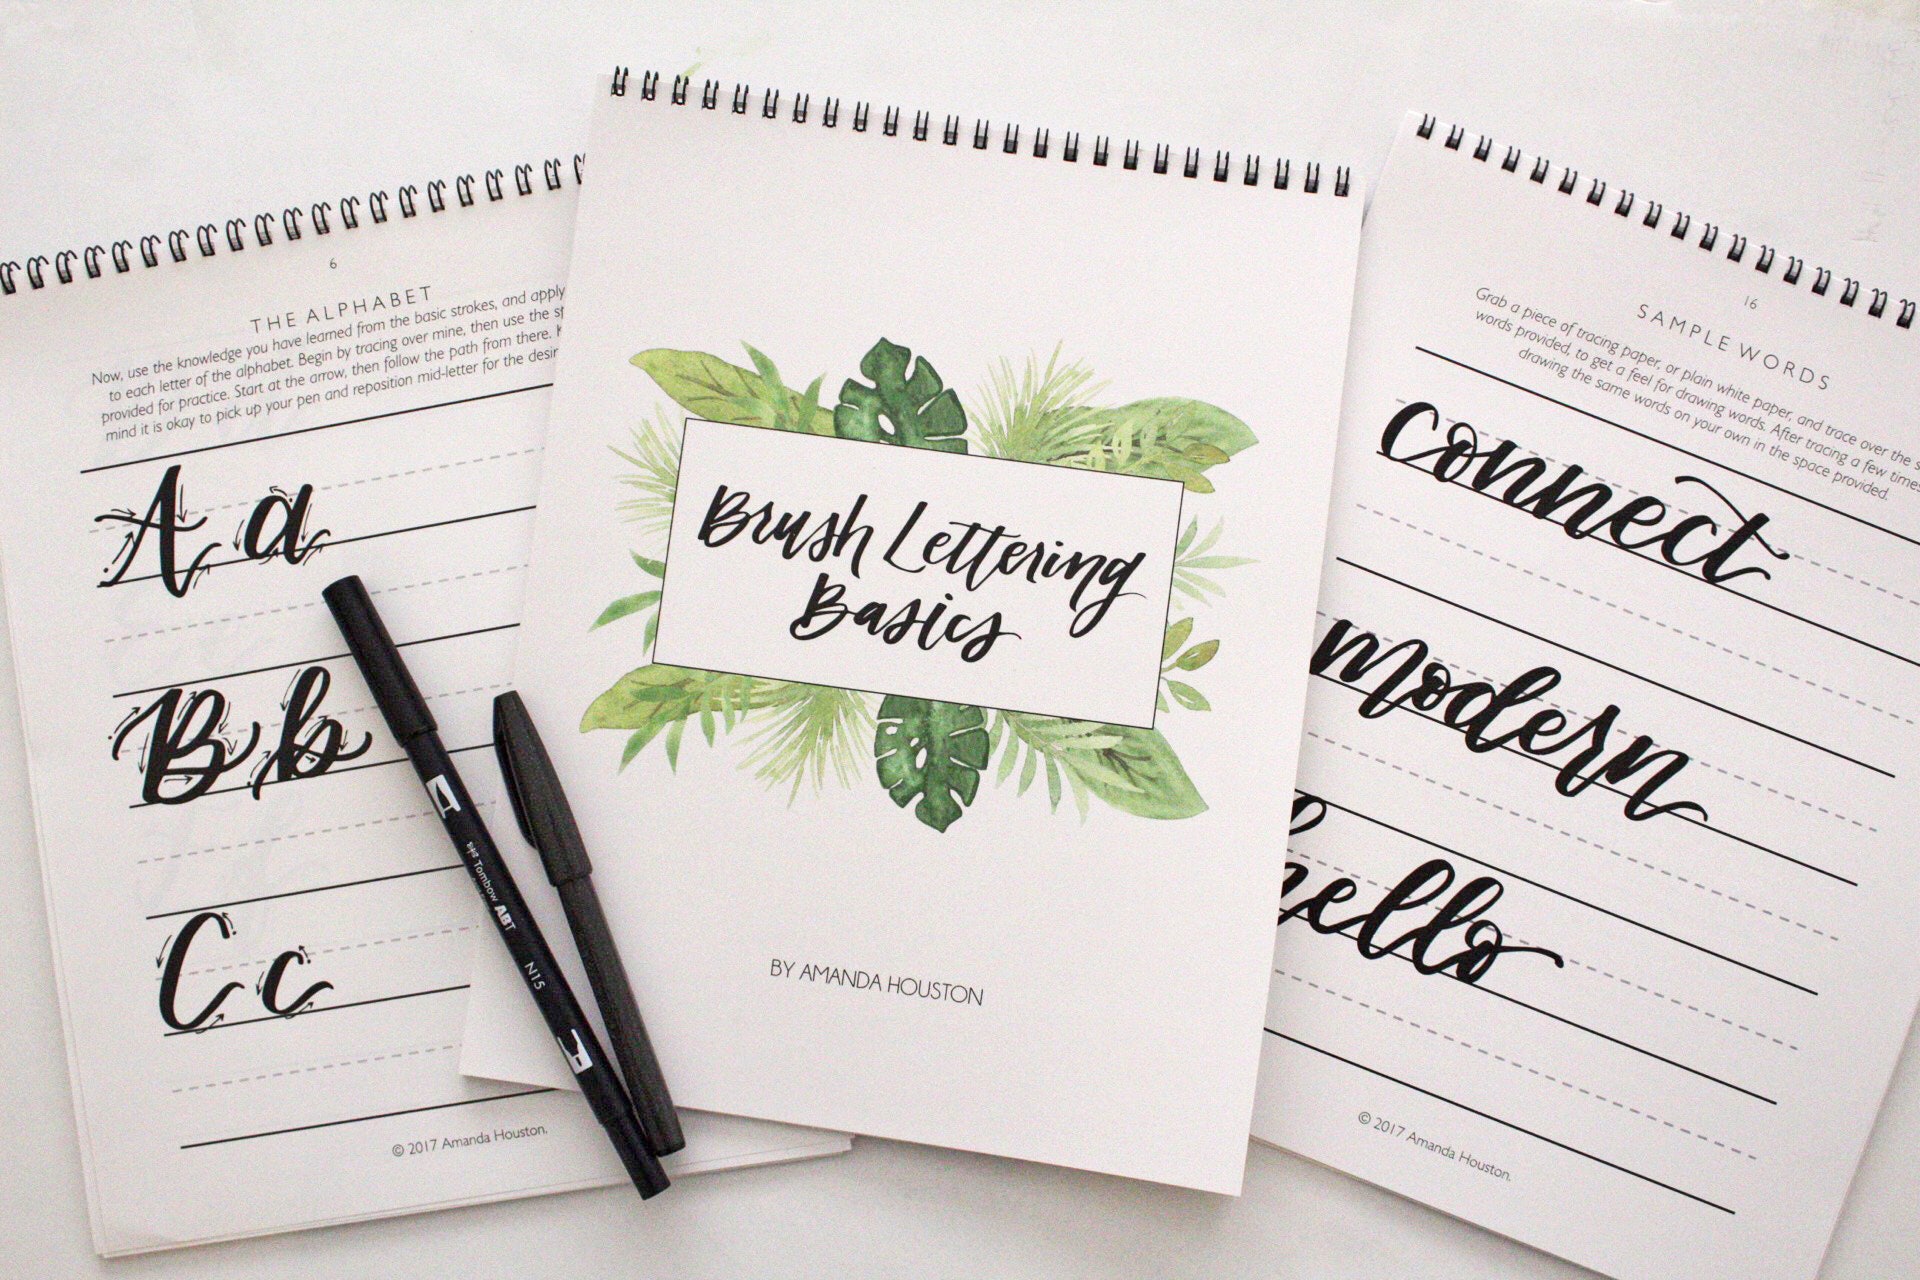 6
THE ALPHABET
Now, use the knowledge you have learned from the basic strokes, and apply
to each letter of the alphabet. Begin by tracing over mine, then use the
provided for practice. Start at the arrow, then follow the path from there.
mind it is okay to pick up your pen and reposition mid-letter for the
A a
B b
C c
© 2017 Amanda Houston.
Tombow ABT
N15
Brush Lettering
Basics
BY AMANDA HOUSTON
16
SAMPLE WORDS
Grab a piece of tracing paper, or plain white paper, and trace over the
words provided, to get a feel for drawing words. After tracing a few times
drawing the same words on your own in the space provided.
connect
modern
hello
© 2017 Amanda Houston.